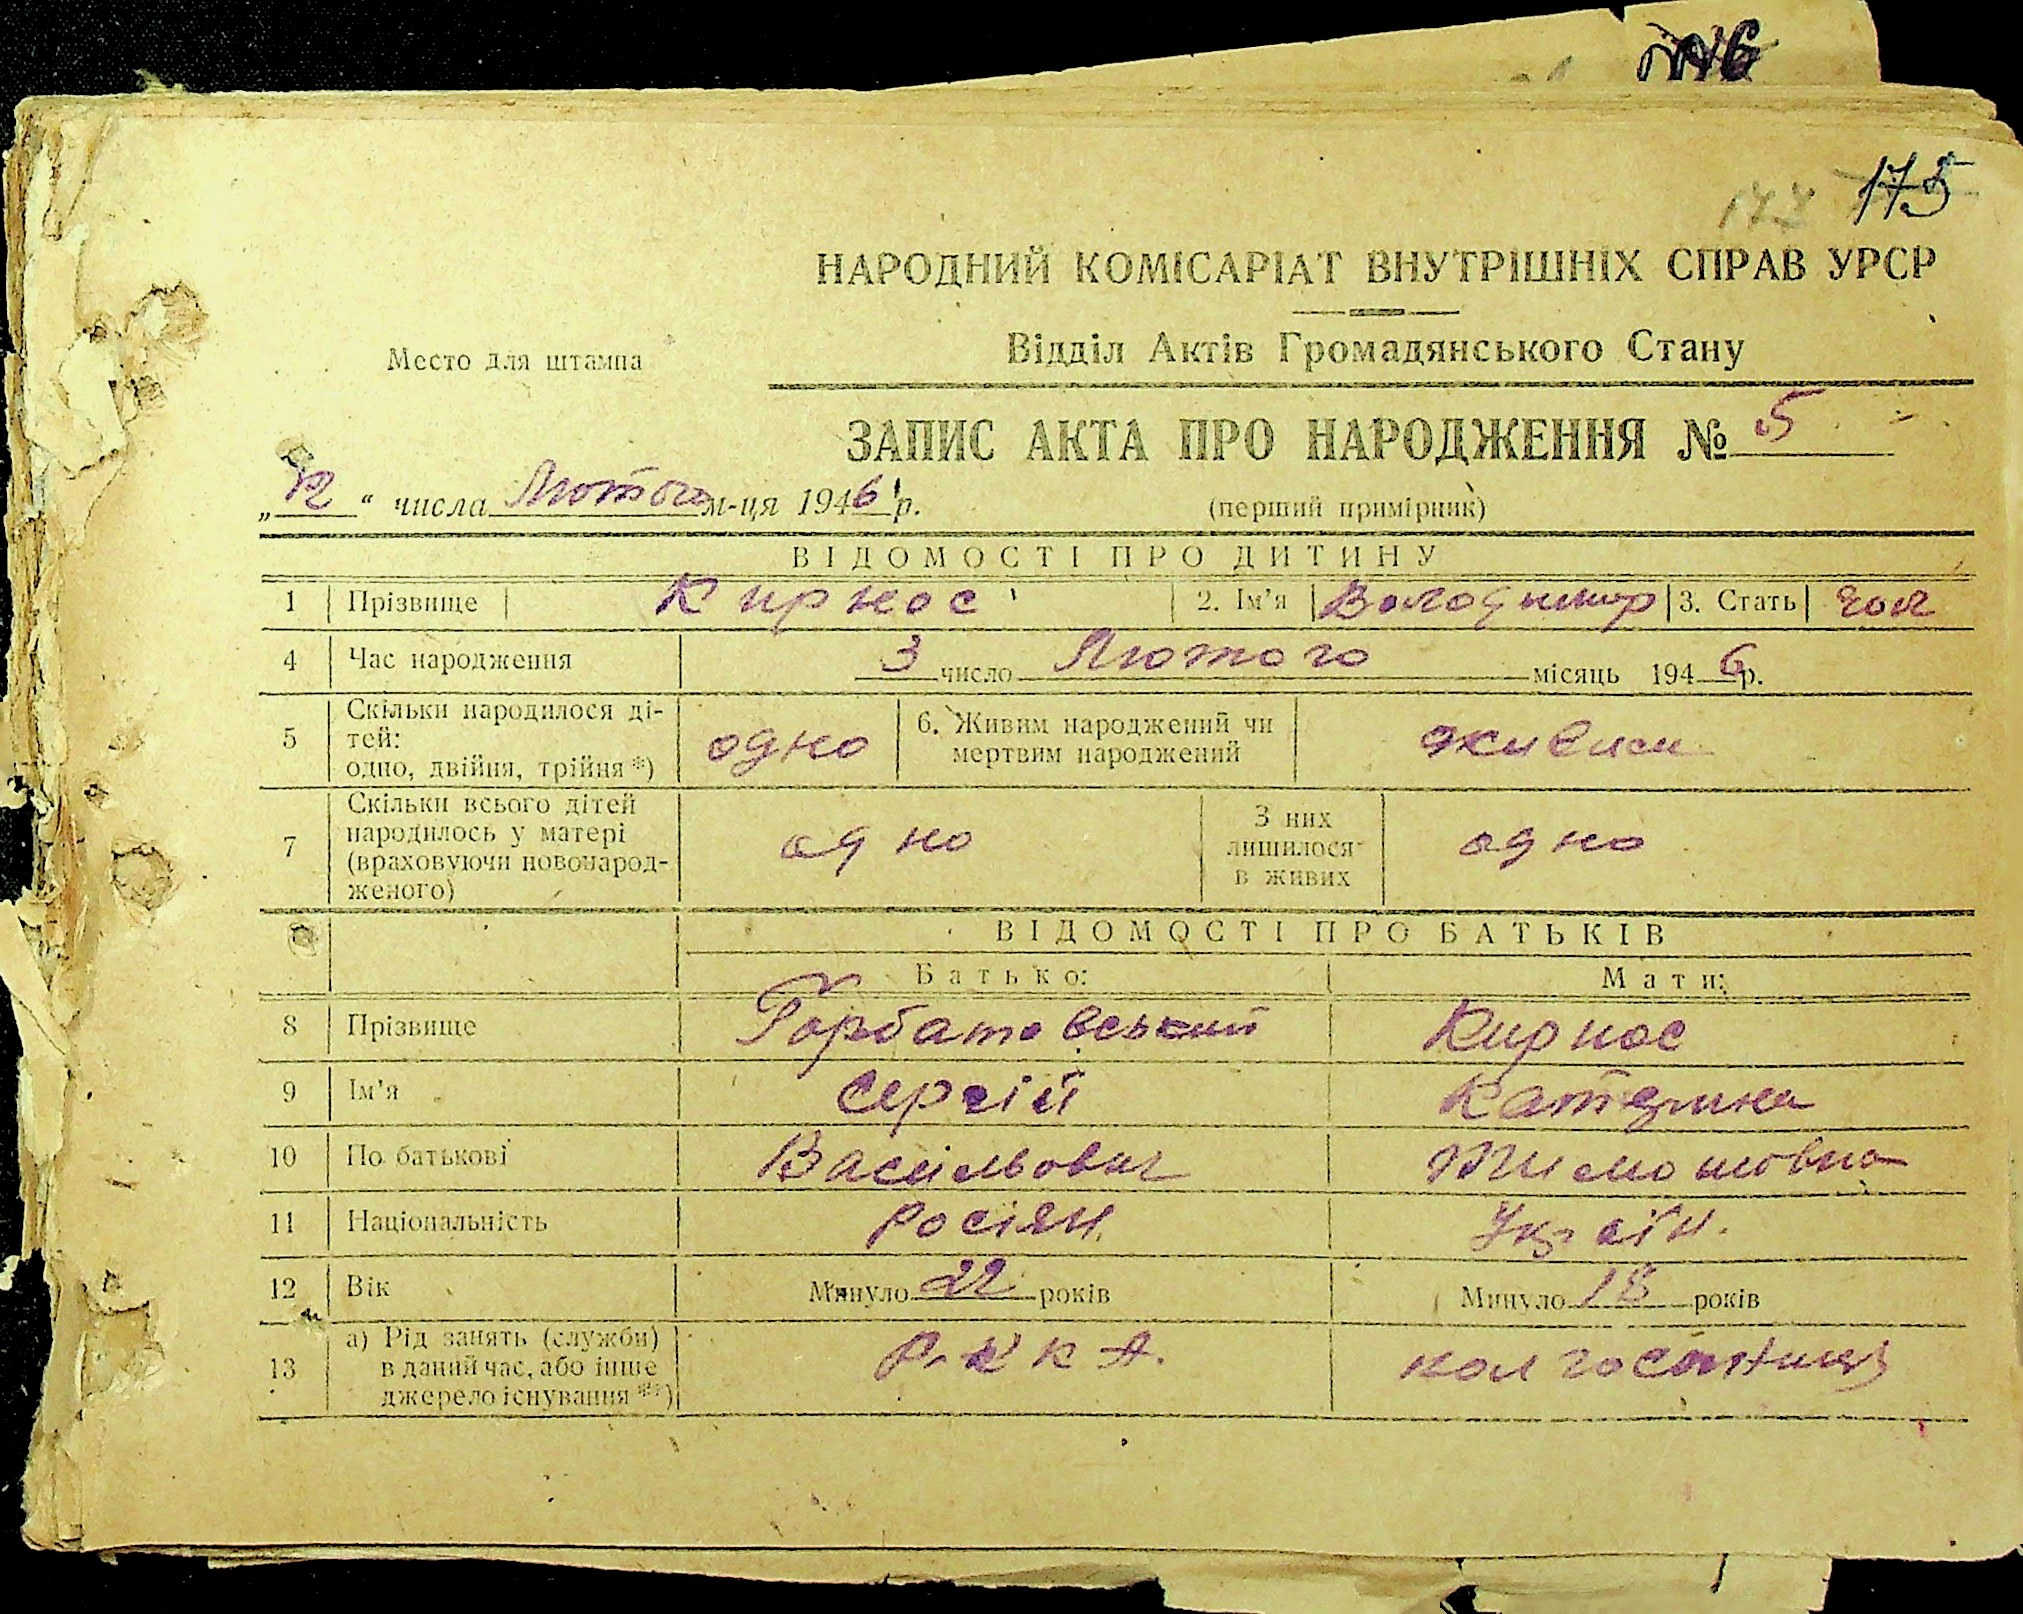 175
НАРОДНИЙ КОМІСАРІАТ ВНУТРІШНІХ СПРАВ УРСР
Место для штампа
Відділ Актів Громадянського Стану
ЗАПИС АКТА ПРО НАРОДЖЕННЯ № 5
„12“ числа Лютого м-ця 1946 р.
(перший примірник)
ВІДОМОСТІ ПРО ДИТИНУ
1 Прізвище Кирнос 2. Ім'я Володимир 3. Стать чол
4 Час народження 3 число Лютого місяць 1946 р.
5 Скільки народилося дітей: одно, двійня, трійня *) одно 6. Живим народжений чи мертвим народжений живим
7 Скільки всього дітей народилось у матері (враховуючи новонародженого) одно З них лишилося в живих одно
ВІДОМОСТІ ПРО БАТЬКІВ
Батько: Мати:
8 Прізвище Горбатовський Кирнос
9 Ім'я Сергій Катерина
10 По батькові Васильович Тимошовна
11 Національність Росіян. Україн.
12 Вік Минуло 22 років Минуло 18 років
13 а) Рід занять (служби) в даний час, або інше джерело існування **) Р.ККА.